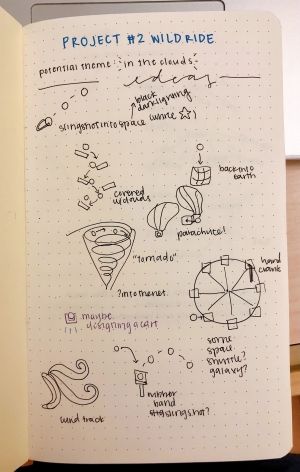 PROJECT #2 WILD RIDE
potential theme: in the clouds
ideas
black
darkligning
slingshot into space (white ☆)
covered
w/clouds
back into
earth
parachute!
"tornado"
hand
crank
? into the net
maybe
designing a cart
some
space
shuttle?
galaxy?
rubber
band
slingshot?
wind track